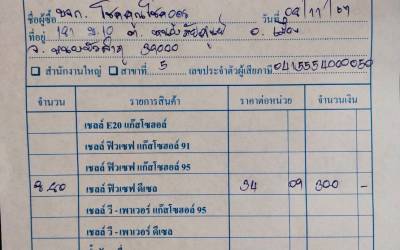 ชื่อผู้ซื้อ หจก. โชคคูณโชค วันที่ 09/11/67
ที่อยู่ 121 ม.10 ต. อ. เมือง
จ. หนองบัวลำภู 39000
สำนักงานใหญ่ สาขาที่ 5 เลขประจำตัวผู้เสียภาษี
จำนวน รายการสินค้า ราคาต่อหน่วย จำนวนเงิน
เชลล์ E20 แก๊สโซฮอล์
เชลล์ ฟิวเซฟ แก๊สโซฮอล์ 91
เชลล์ ฟิวเซฟ แก๊สโซฮอล์ 95
8.80 เชลล์ ฟิวเซฟ ดีเซล 34 09 300 -
เชลล์ วี - เพาเวอร์ แก๊สโซฮอล์ 95
เชลล์ วี - เพาเวอร์ ดีเซล